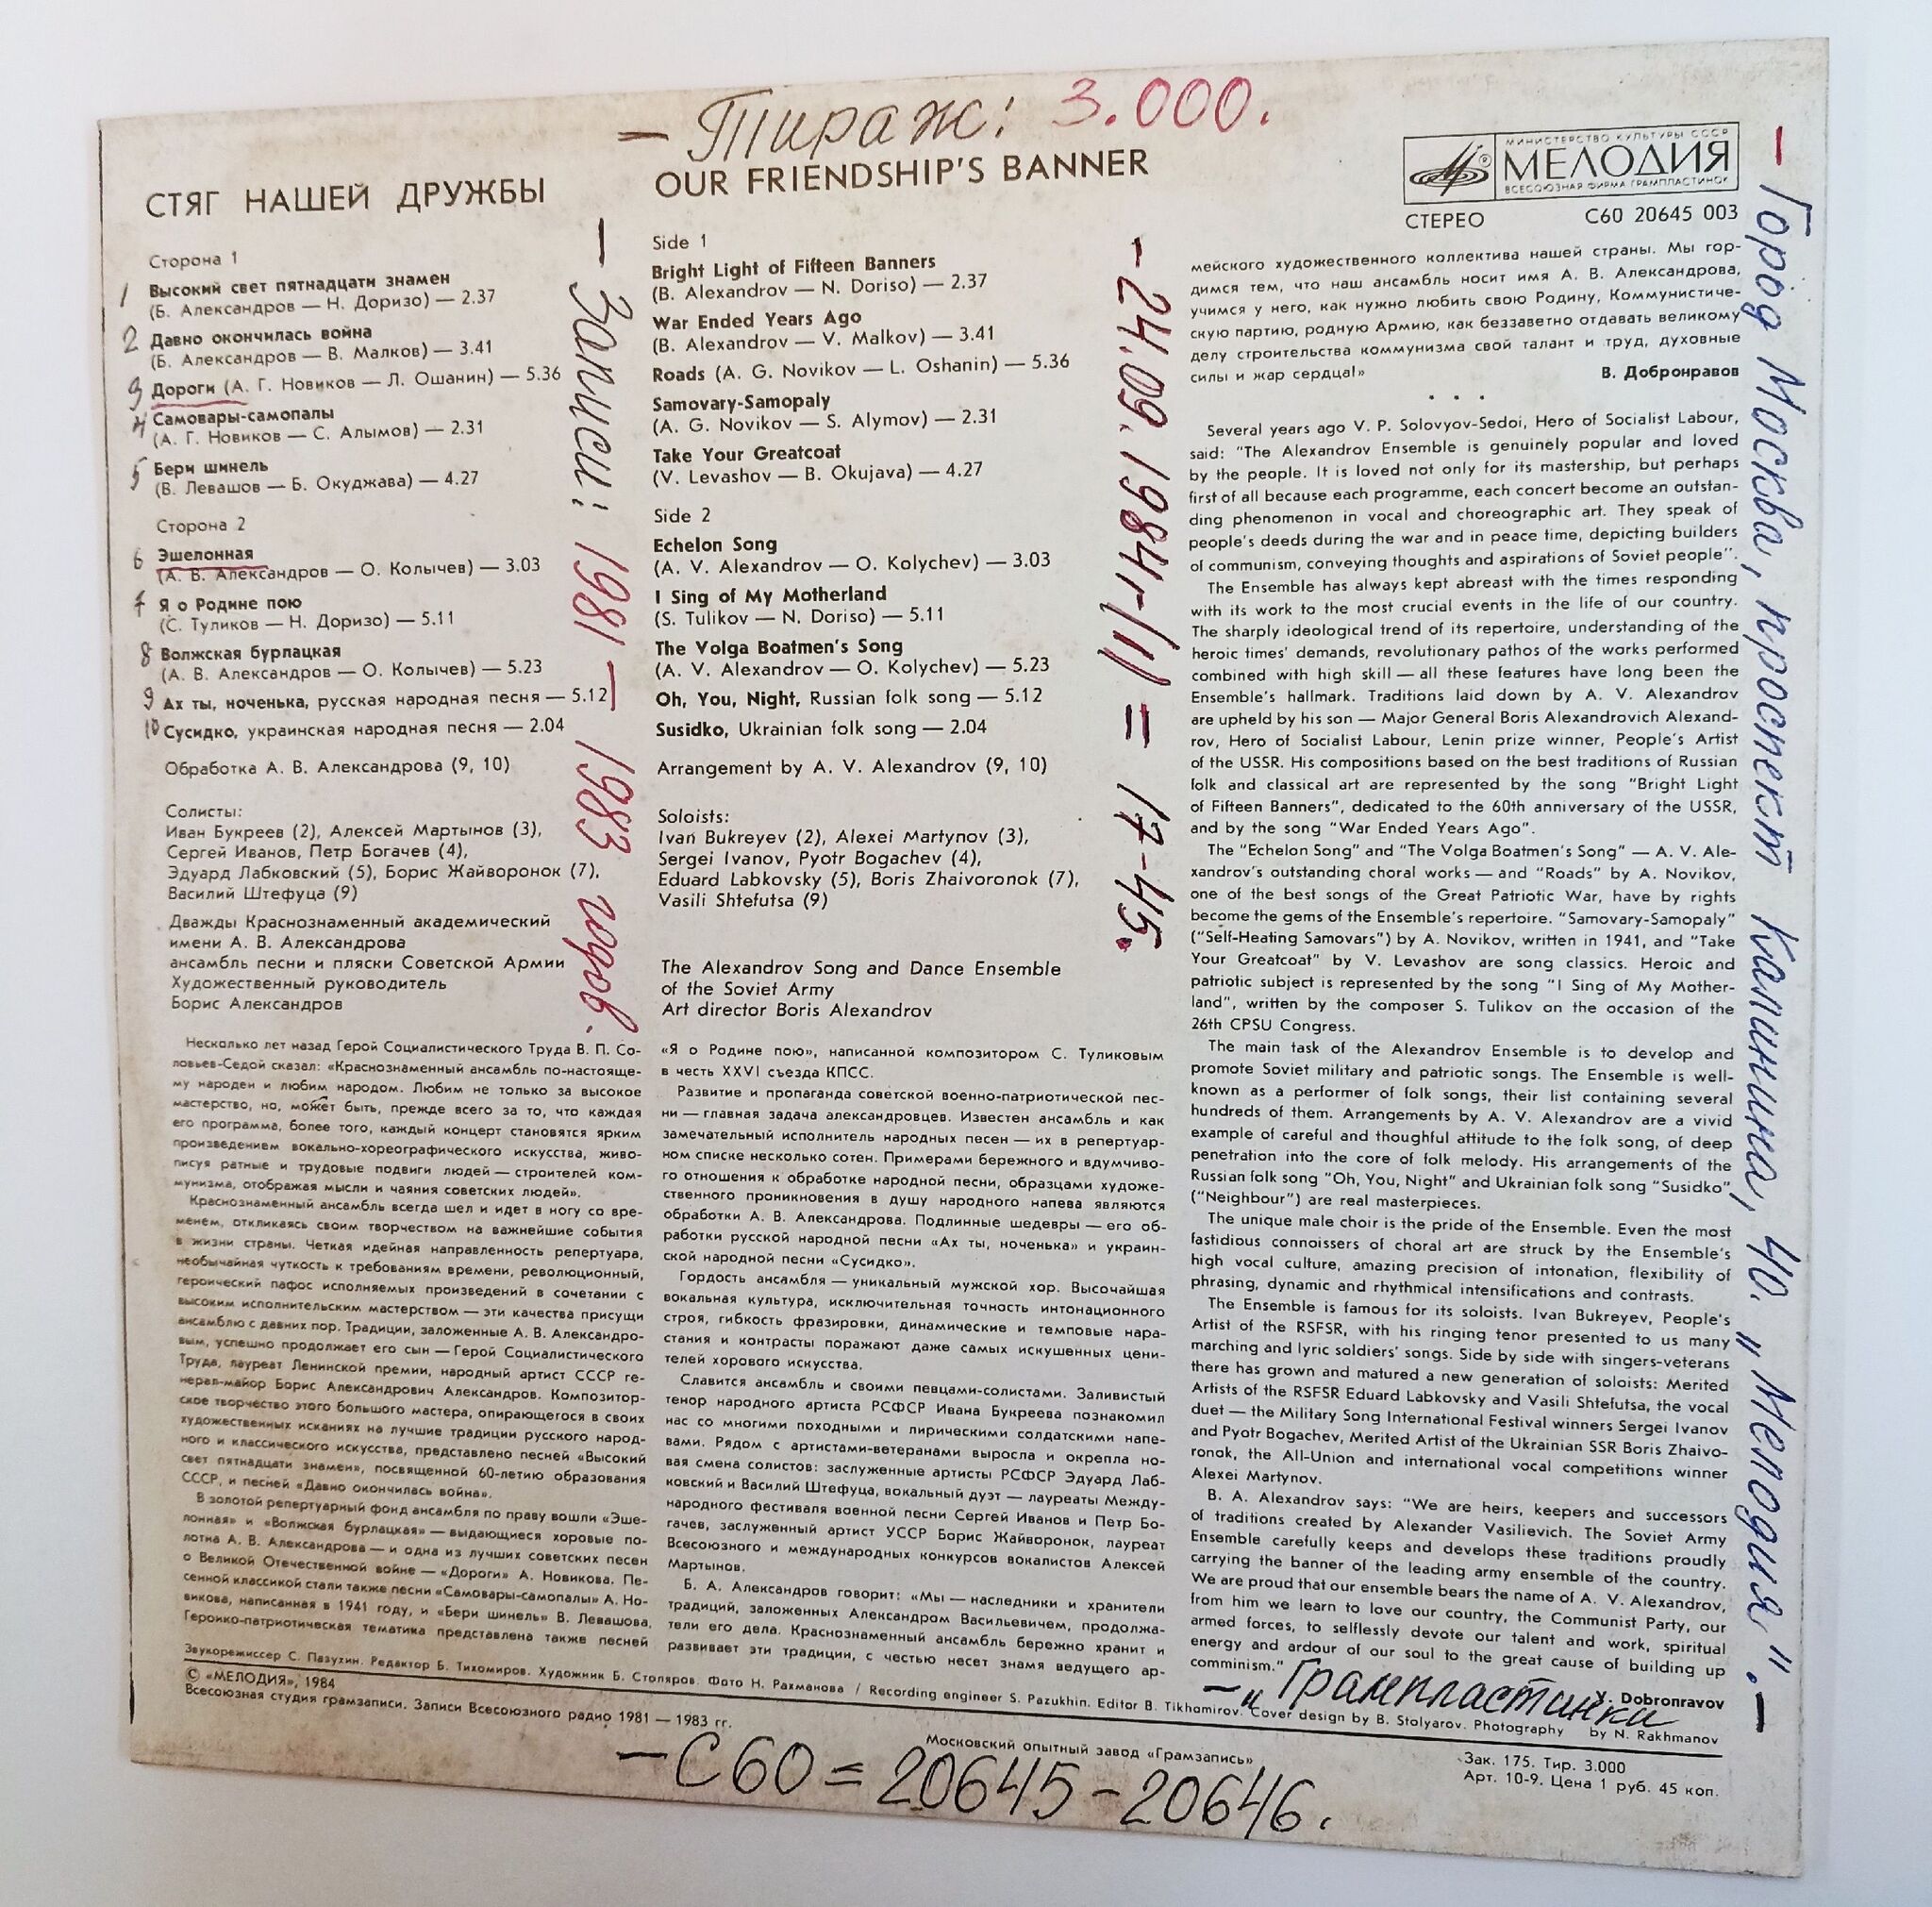 — Тираж: 3.000.
СТЯГ НАШЕЙ ДРУЖБЫ
Сторона 1
1 Высокий свет пятнадцати знамен
(Б. Александров — Н. Доризо) — 2.37
2 Давно окончилась война
(Б. Александров — В. Малков) — 3.41
3 Дороги (А. Г. Новиков — Л. Ошанин) — 5.36
4 Самовары-самопалы
(А. Г. Новиков — С. Алымов) — 2.31
5 Бери шинель
(В. Левашов — Б. Окуджава) — 4.27
Сторона 2
6 Эшелонная
(А. В. Александров — О. Колычев) — 3.03
7 Я о Родине пою
(С. Туликов — Н. Доризо) — 5.11
8 Волжская бурлацкая
(А. В. Александров — О. Колычев) — 5.23
9 Ах ты, ноченька, русская народная песня — 5.12
10 Сусидко, украинская народная песня — 2.04
Обработка А. В. Александрова (9, 10)
Солисты:
Иван Букреев (2), Алексей Мартынов (3),
Сергей Иванов, Петр Богачев (4),
Эдуард Лабковский (5), Борис Жайворонок (7),
Василий Штефуца (9)
Дважды Краснознаменный академический
имени А. В. Александрова
ансамбль песни и пляски Советской Армии
Художественный руководитель
Борис Александров
— Записи: 1981 — 1983 годов.
OUR FRIENDSHIP'S BANNER
Side 1
Bright Light of Fifteen Banners
(B. Alexandrov — N. Doriso) — 2.37
War Ended Years Ago
(B. Alexandrov — V. Malkov) — 3.41
Roads (A. G. Novikov — L. Oshanin) — 5.36
Samovary-Samopaly
(A. G. Novikov — S. Alymov) — 2.31
Take Your Greatcoat
(V. Levashov — B. Okujava) — 4.27
Side 2
Echelon Song
(A. V. Alexandrov — O. Kolychev) — 3.03
I Sing of My Motherland
(S. Tulikov — N. Doriso) — 5.11
The Volga Boatmen's Song
(A. V. Alexandrov — O. Kolychev) — 5.23
Oh, You, Night, Russian folk song — 5.12
Susidko, Ukrainian folk song — 2.04
Arrangement by A. V. Alexandrov (9, 10)
Soloists:
Ivan Bukreyev (2), Alexei Martynov (3),
Sergei Ivanov, Pyotr Bogachev (4),
Eduard Labkovsky (5), Boris Zhaivoronok (7),
Vasili Shtefutsa (9)
The Alexandrov Song and Dance Ensemble
of the Soviet Army
Art director Boris Alexandrov
— 24.09.1984г(II) = 17-45.
Несколько лет назад Герой Социалистического Труда В. П. Со-
ловьев-Седой сказал: «Краснознаменный ансамбль по-настояще-
му народен и любим народом. Любим не только за высокое
мастерство, но, может быть, прежде всего за то, что каждая
его программа, более того, каждый концерт становятся ярким
произведением вокально-хореографического искусства, живо-
писуя ратные и трудовые подвиги людей — строителей ком-
мунизма, отображая мысли и чаяния советских людей».
Краснознаменный ансамбль всегда шел и идет в ногу со вре-
менем, откликаясь своим творчеством на важнейшие события
в жизни страны. Четкая идейная направленность репертуара,
необычайная чуткость к требованиям времени, революционный,
героический пафос исполняемых произведений в сочетании с
высоким исполнительским мастерством — эти качества присущи
ансамблю с давних пор. Традиции, заложенные А. В. Александро-
вым, успешно продолжает его сын — Герой Социалистического
Труда, лауреат Ленинской премии, народный артист СССР ге-
нерал-майор Борис Александрович Александров. Композитор-
ское творчество этого большого мастера, опирающегося в своих
художественных исканиях на лучшие традиции русского народ-
ного и классического искусства, представлено песней «Высокий
свет пятнадцати знамен», посвященной 60-летию образования
СССР, и песней «Давно окончилась война».
В золотой репертуарный фонд ансамбля по праву вошли «Эше-
лонная» и «Волжская бурлацкая» — выдающиеся хоровые по-
лотна А. В. Александрова — и одна из лучших советских песен
о Великой Отечественной войне — «Дороги» А. Новикова. Пе-
сенной классикой стали также песни «Самовары-самопалы» А. Но-
викова, написанная в 1941 году, и «Бери шинель» В. Левашова.
Героико-патриотическая тематика представлена также песней
«Я о Родине пою», написанной композитором С. Туликовым
в честь XXVI съезда КПСС.
Развитие и пропаганда советской военно-патриотической пес-
ни — главная задача александровцев. Известен ансамбль и как
замечательный исполнитель народных песен — их в репертуар-
ном списке несколько сотен. Примерами бережного и вдумчиво-
го отношения к обработке народной песни, образцами художе-
ственного проникновения в душу народного напева являются
обработки А. В. Александрова. Подлинные шедевры — его об-
работки русской народной песни «Ах ты, ноченька» и украин-
ской народной песни «Сусидко».
Гордость ансамбля — уникальный мужской хор. Высочайшая
вокальная культура, исключительная точность интонационного
строя, гибкость фразировки, динамические и темповые нара-
стания и контрасты поражают даже самых искушенных цени-
телей хорового искусства.
Славится ансамбль и своими певцами-солистами. Заливистый
тенор народного артиста РСФСР Ивана Букреева познакомил
нас со многими походными и лирическими солдатскими напе-
вами. Рядом с артистами-ветеранами выросла и окрепла но-
вая смена солистов: заслуженные артисты РСФСР Эдуард Лаб-
ковский и Василий Штефуца, вокальный дуэт — лауреаты Между-
народного фестиваля военной песни Сергей Иванов и Петр Бо-
гачев, заслуженный артист УССР Борис Жайворонок, лауреат
Всесоюзного и международных конкурсов вокалистов Алексей
Мартынов.
Б. А. Александров говорит: «Мы — наследники и хранители
традиций, заложенных Александром Васильевичем, продолжа-
тели его дела. Краснознаменный ансамбль бережно хранит и
развивает эти традиции, с честью несет знамя ведущего ар-
МИНИСТЕРСТВО КУЛЬТУРЫ СССР
МЕЛОДИЯ
ВСЕСОЮЗНАЯ ФИРМА ГРАМПЛАСТИНОК
СТЕРЕО С60 20645 003
мейского художественного коллектива нашей страны. Мы гор-
димся тем, что наш ансамбль носит имя А. В. Александрова,
учимся у него, как нужно любить свою Родину, Коммунистиче-
скую партию, родную Армию, как беззаветно отдавать великому
делу строительства коммунизма свой талант и труд, духовные
силы и жар сердца!»
В. Добронравов
• • •
Several years ago V. P. Solovyov-Sedoi, Hero of Socialist Labour,
said: "The Alexandrov Ensemble is genuinely popular and loved
by the people. It is loved not only for its mastership, but perhaps
first of all because each programme, each concert become an outstan-
ding phenomenon in vocal and choreographic art. They speak of
people's deeds during the war and in peace time, depicting builders
of communism, conveying thoughts and aspirations of Soviet people".
The Ensemble has always kept abreast with the times responding
with its work to the most crucial events in the life of our country.
The sharply ideological trend of its repertoire, understanding of the
heroic times' demands, revolutionary pathos of the works performed
combined with high skill — all these features have long been the
Ensemble's hallmark. Traditions laid down by A. V. Alexandrov
are upheld by his son — Major General Boris Alexandrovich Alexand-
rov, Hero of Socialist Labour, Lenin prize winner, People's Artist
of the USSR. His compositions based on the best traditions of Russian
folk and classical art are represented by the song "Bright Light
of Fifteen Banners", dedicated to the 60th anniversary of the USSR,
and by the song "War Ended Years Ago".
The "Echelon Song" and "The Volga Boatmen's Song" — A. V. Ale-
xandrov's outstanding choral works — and "Roads" by A. Novikov,
one of the best songs of the Great Patriotic War, have by rights
become the gems of the Ensemble's repertoire. "Samovary-Samopaly"
("Self-Heating Samovars") by A. Novikov, written in 1941, and "Take
Your Greatcoat" by V. Levashov are song classics. Heroic and
patriotic subject is represented by the song "I Sing of My Mother-
land", written by the composer S. Tulikov on the occasion of the
26th CPSU Congress.
The main task of the Alexandrov Ensemble is to develop and
promote Soviet military and patriotic songs. The Ensemble is well-
known as a performer of folk songs, their list containing several
hundreds of them. Arrangements by A. V. Alexandrov are a vivid
example of careful and thoughtful attitude to the folk song, of deep
penetration into the core of folk melody. His arrangements of the
Russian folk song "Oh, You, Night" and Ukrainian folk song "Susidko"
("Neighbour") are real masterpieces.
The unique male choir is the pride of the Ensemble. Even the most
fastidious connoissers of choral art are struck by the Ensemble's
high vocal culture, amazing precision of intonation, flexibility of
phrasing, dynamic and rhythmical intensifications and contrasts.
The Ensemble is famous for its soloists. Ivan Bukreyev, People's
Artist of the RSFSR, with his ringing tenor presented to us many
marching and lyric soldiers' songs. Side by side with singers-veterans
there has grown and matured a new generation of soloists: Merited
Artists of the RSFSR Eduard Labkovsky and Vasili Shtefutsa, the vocal
duet — the Military Song International Festival winners Sergei Ivanov
and Pyotr Bogachev, Merited Artist of the Ukrainian SSR Boris Zhaivo-
ronok, the All-Union and international vocal competitions winner
Alexei Martynov.
B. A. Alexandrov says: "We are heirs, keepers and successors
of traditions created by Alexander Vasilievich. The Soviet Army
Ensemble carefully keeps and develops these traditions proudly
carrying the banner of the leading army ensemble of the country.
We are proud that our ensemble bears the name of A. V. Alexandrov,
from him we learn to love our country, the Communist Party, our
armed forces, to selflessly devote our talent and work, spiritual
energy and ardour of our soul to the great cause of building up
comminism."
V. Dobronravov
— Город Москва, проспект Калинина, 40. „Мелодия". —
— „Грампластинки
Звукорежиссер С. Пазухин. Редактор Б. Тихомиров. Художник Б. Столяров. Фото Н. Рахманова / Recording engineer S. Pazukhin. Editor B. Tikhomirov. Cover design by B. Stolyarov. Photography by N. Rakhmanov
© «МЕЛОДИЯ», 1984
Всесоюзная студия грамзаписи. Записи Всесоюзного радио 1981 — 1983 гг.
Московский опытный завод «Грамзапись»
Зак. 175. Тир. 3.000
Арт. 10-9. Цена 1 руб. 45 коп.
— С60 = 20645-20646.